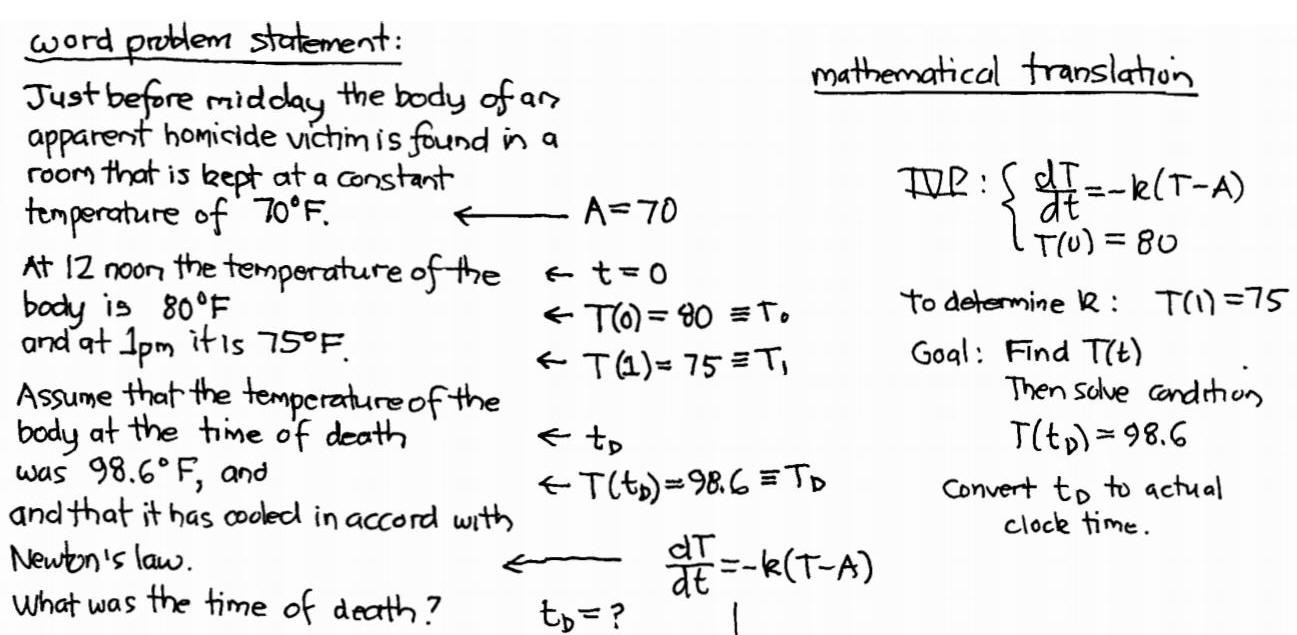 word problem statement:
Just before midday the body of an
apparent homicide victim is found in a
room that is kept at a constant
temperature of 70°F. ← A=70
At 12 noon the temperature of the ← t=0
body is 80°F ← T(0)=80 ≡T₀
and at 1pm it is 75°F. ← T(1)=75 ≡T₁
Assume that the temperature of the
body at the time of death ← t_D
was 98.6°F, and ← T(t_D)=98.6 ≡T_D
and that it has cooled in accord with
Newton's law. ← dT/dt=-k(T-A)
What was the time of death? t_D=?
mathematical translation
IVP: { dT/dt=-k(T-A)
T(0)=80
to determine k: T(1)=75
Goal: Find T(t)
Then solve condition
T(t_D)=98.6
Convert t_D to actual
clock time.